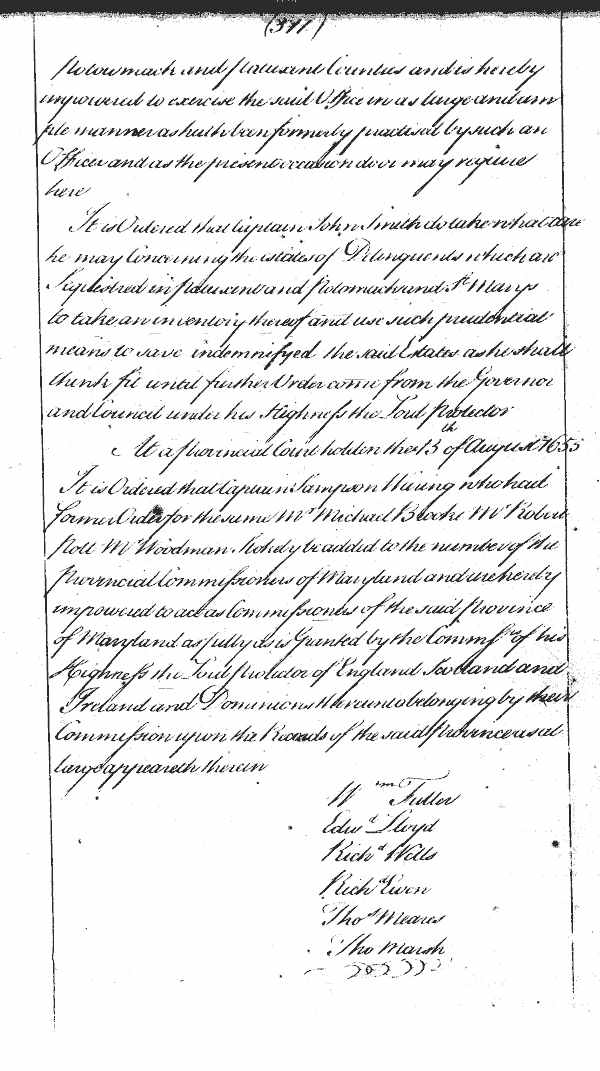 (511)
Potowmack and Patuxent Counties and is hereby
impowered to exercise the said Office in as large and am
ple manner as hath been formerly practised by such an
Officer and as the present occasion door may require
here
It is Ordered that Captain John Smith do take what care
he may Concerning the estates of Delinquents which are
Sequestred in Patuxent and Potomack and St Marys
to take an inventory thereof and use such prudential
means to save indemnifyed the said Estates as he shall
think fit until further Order come from the Governor
and Council under his Highness the Lord Protector
At a Provincial Court holden the 13th of August 1655
It is Ordered that Captain Sampson Waring who had
former Order for the same Mr Michael Brooke Mr Robert
Holt Mr Woodman Stokely be added to the number of the
Provincial Commissioners of Maryland and are hereby
impowered to act as Commissioners of the said Province
of Maryland as fully as is Granted by the Commrs of his
Highness the Lord Protector of England Scotland and
Ireland and Dominions thereunto belonging by their
Commission upon the Records of the said Province as at
large appeareth therein
Wm Fuller
Edwd Lloyd
Richd Wells
Richd Ewen
Thos Meares
Tho Marsh